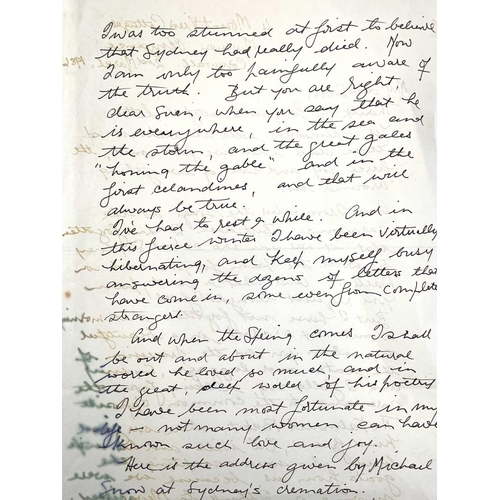 I was too stunned at first to believe
that Sydney had really died. Now
I am only too painfully aware of
the truth. But you are right,
dear Sven, when you say that he
is everywhere, in the sea and
the storm, and the great gales
"honing the gable" and in the
first celandines, and that will
always be true.
I've had to rest a while. And in
this fierce winter I have been virtually
hibernating, and keep myself busy
answering the dozens of letters that
have come in, some even from complete
strangers.
And when the Spring comes I shall
be out and about in the natural
world he loved so much, and in
the great, deep world of his poetry
I have been most fortunate in my
life – not many women can have
known such love and joy.
Here is the address given by Michael
Snow at Sydney's cremation.